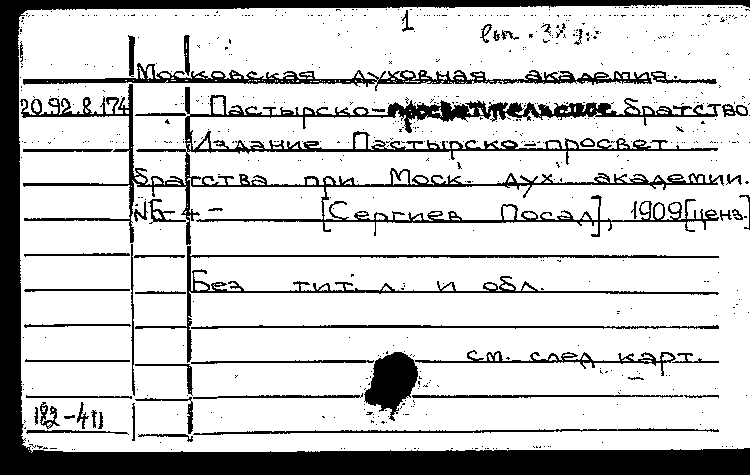 1
Московская духовная академия.
20.92.8.174 Пастырско-просветительское братство
Издание Пастырско-просвет.
братства при Моск. дух. академии.
№ 4 - [Сергиев Посад], 1909 [ценз.]
Без тит. л. и обл.
см. след карт.
182-411